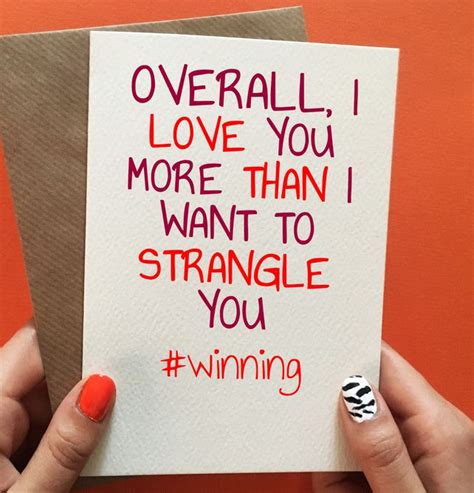 OVERALL, I
LOVE YOU
MORE THAN I
WANT TO
STRANGLE
YOU
#winning